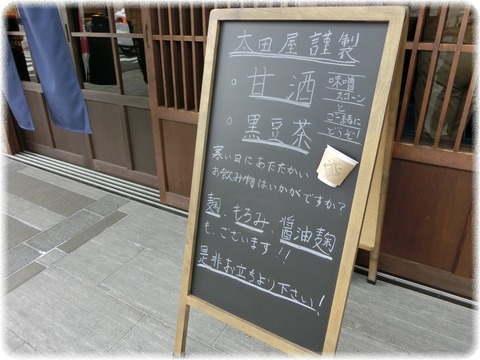 太田屋謹製
・甘酒
味噌
スコーン
と
ご一緒に
どうぞ!
・黒豆茶
寒い日にあたたかい
お飲み物はいかがですか?
麹、もろみ、醤油麹
も、ございます!!
是非お立ちより下さい!